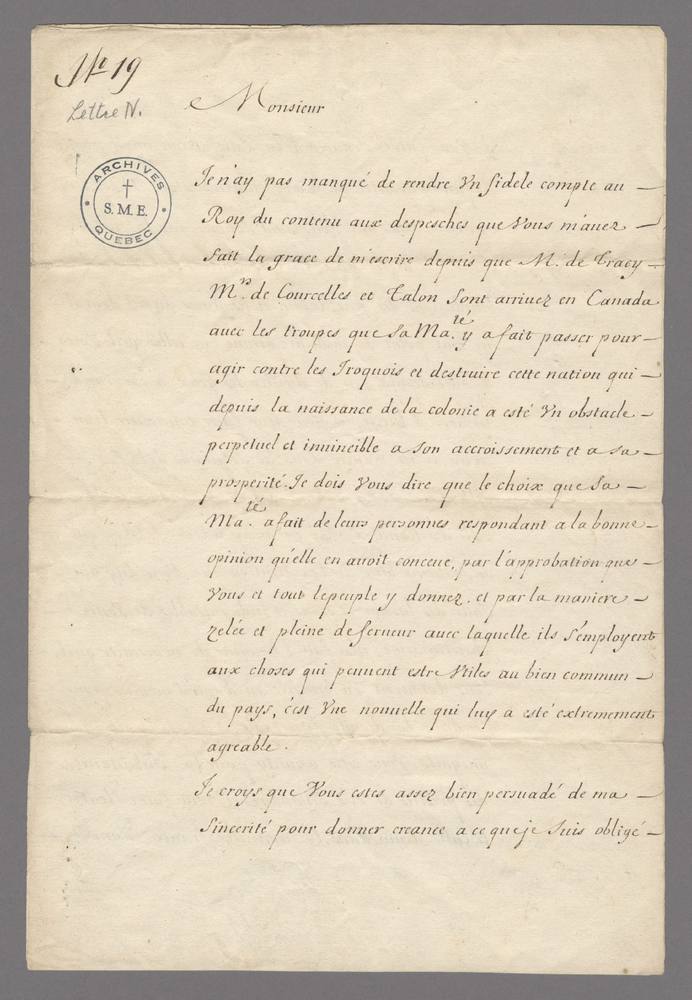 No 19
Lettre N.
Monsieur
ARCHIVES
S.M.E.
QUEBEC
Je n'ay pas manqué de rendre Vn fidele compte au —
Roy du contenu aux despesches que Vous m'auez —
fait la grace de m'escrire depuis que M. de Tracy —
Mrs. de Courcelles et Talon sont arriuez en Canada
auec les troupes que Sa Ma.té y a fait passer pour —
agir contre les Iroquois et destruire cette nation qui —
depuis la naissance de la colonie a esté Vn obstacle —
perpetuel et inuincible a son accroissement et a sa —
prosperité. Je dois Vous dire que le choix que Sa —
Ma.té a fait de leurs personnes respondant a la bonne —
opinion qu'elle en auoit conceue, par l'approbation que —
Vous et tout le peuple y donnez, et par la maniere —
zelée et pleine de ferueur auec laquelle ils s'employent
aux choses qui peuuent estre Vtiles au bien commun —
du pays, c'est Vne nouuelle qui luy a esté extremement
agreable.
Je croys que Vous estes assez bien persuadé de ma —
Sincerité pour donner creance a ce que je suis obligé —